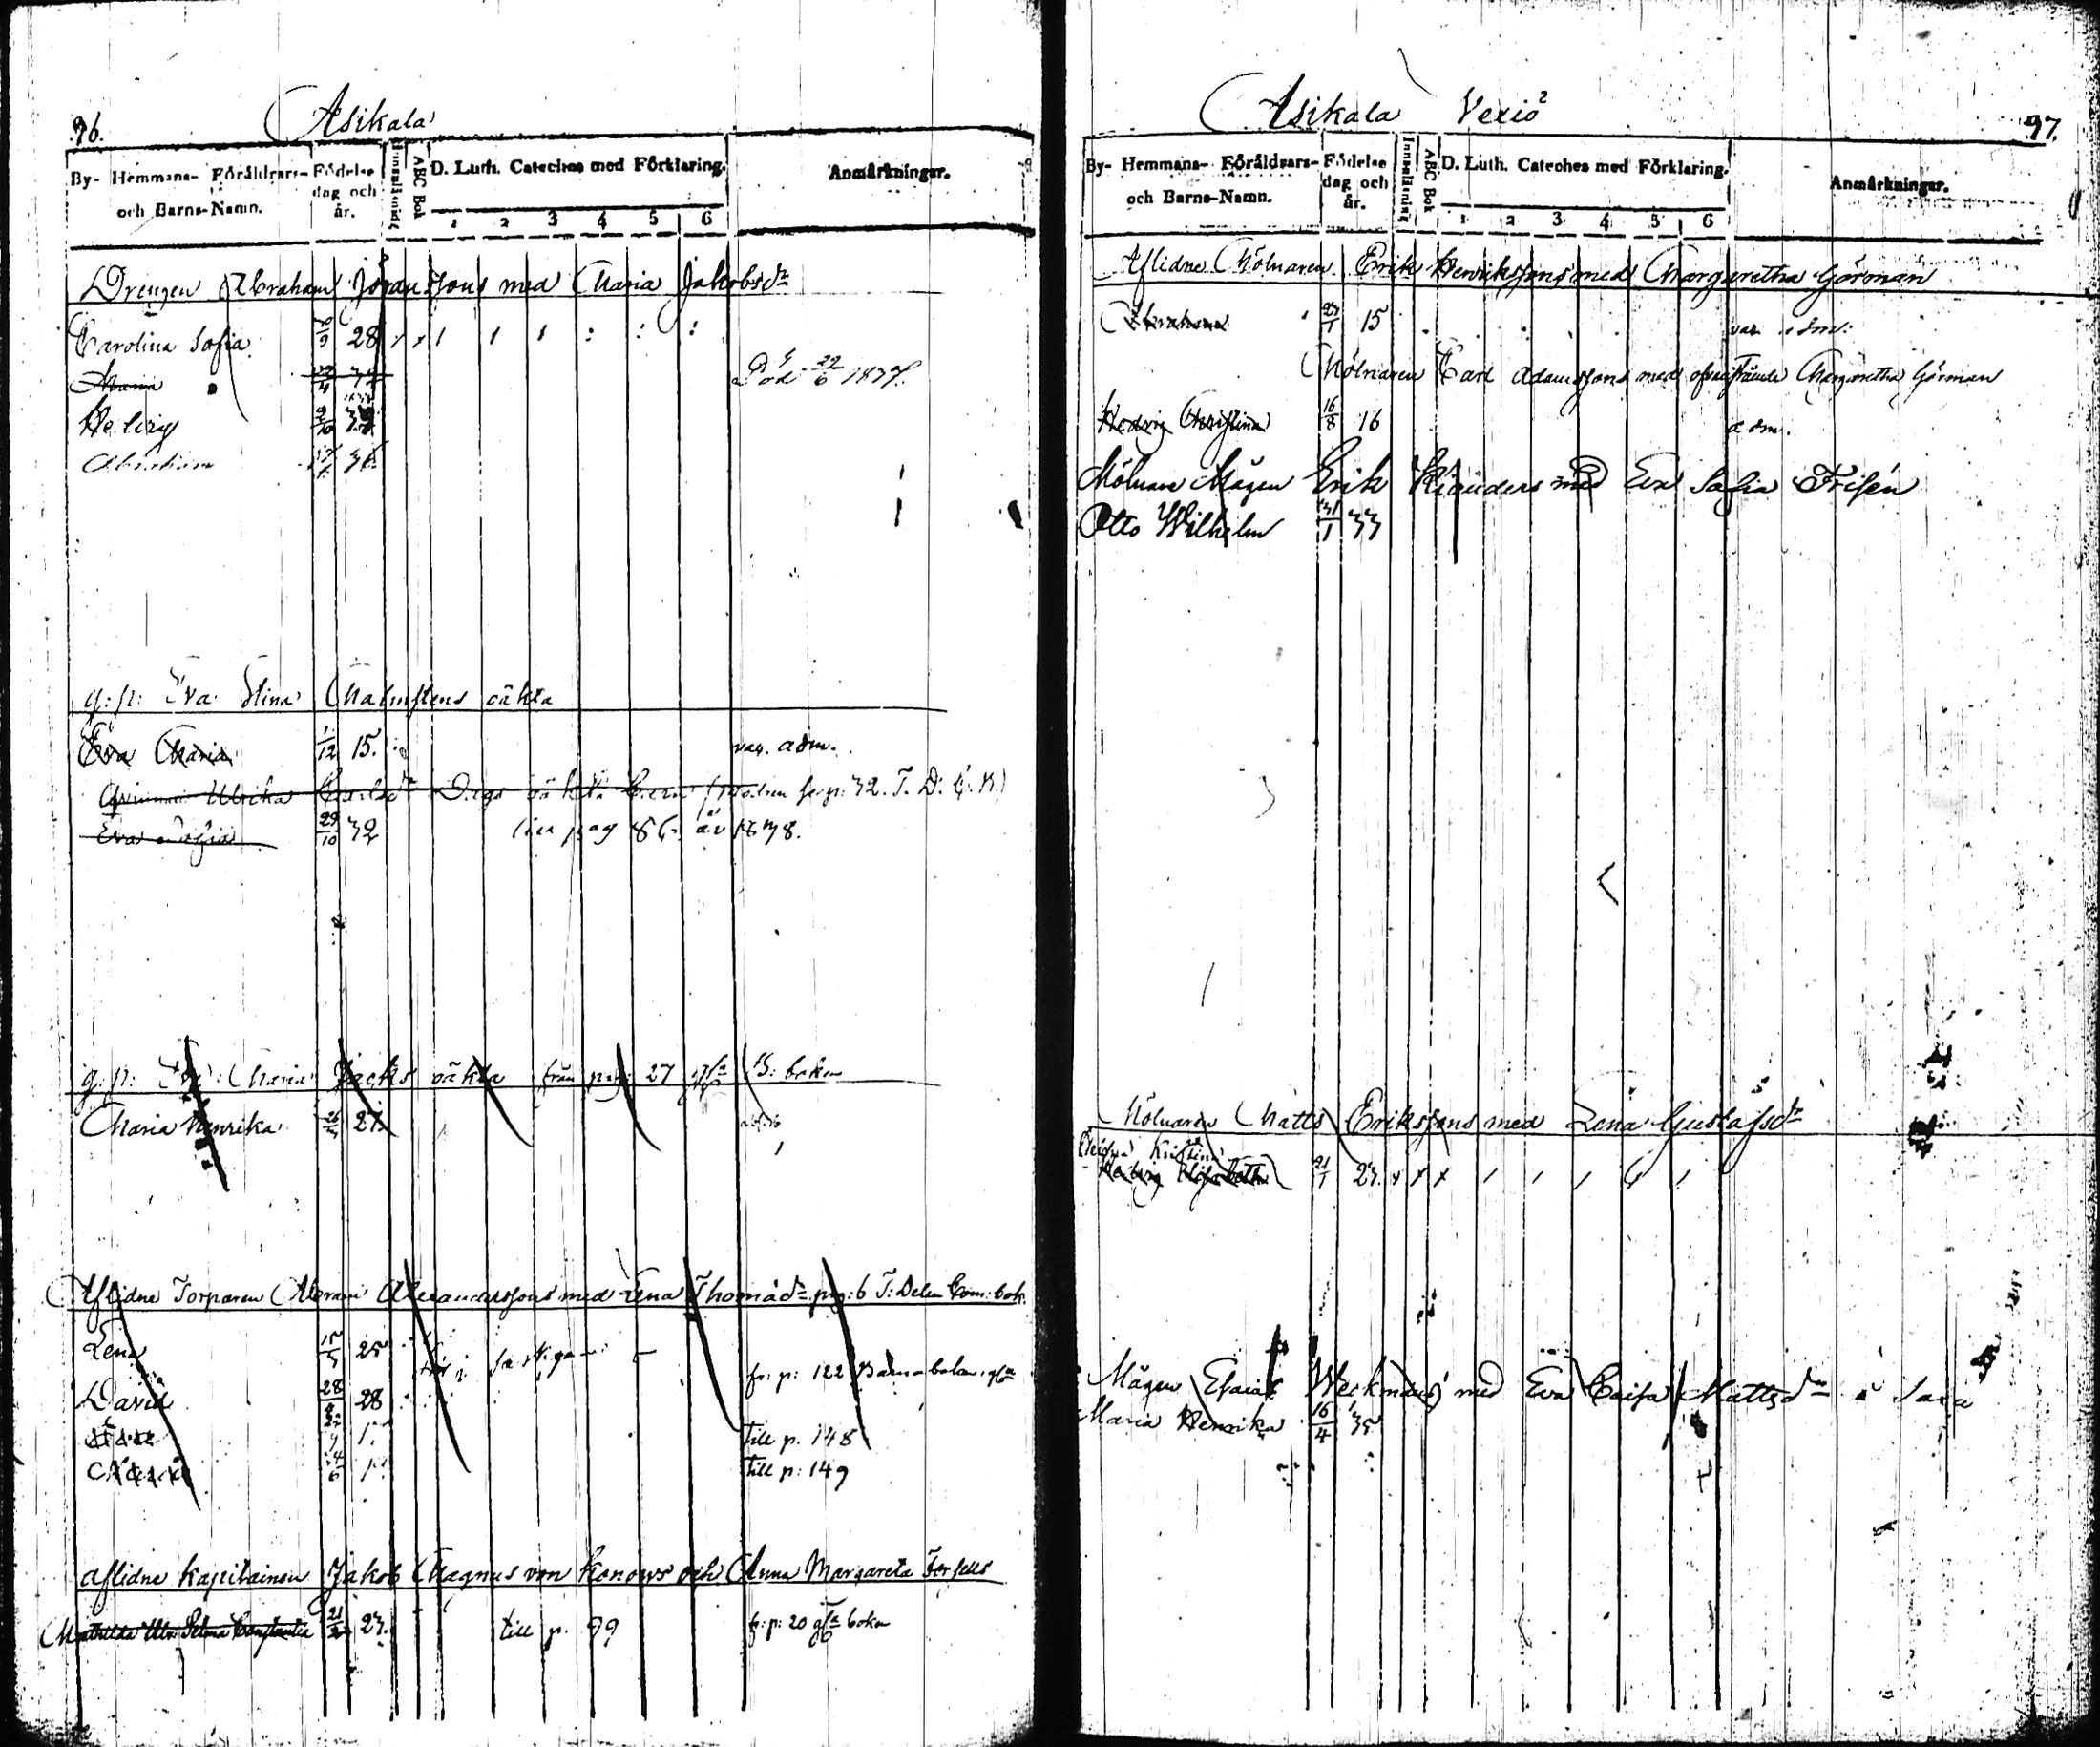 96.
Asikala
By- Hemmans- Föräldrars- och Barns-Namn.
Födelse dag och år.
Innanläsning
ABC Bok
D. Luth. Cateches med Förklaring.
1 2 3 4 5 6
Anmärkningar.
Drengen Abraham Jöranssons med Maria Jakobsdr
Carolina Sofia 28
Maria Död 22/6 1837.
Hedvig
Abraham
g: p: Eva Stina Malmstens oäkta
Eva Maria 1/12 15. var. adm.
Qvinnan Ulrika Carlsdr oäkta Barn
Eva Sofia 29/10 32
g: p: Maria Jäcks oäkta från pag: 27 B: boken
Maria Henrika 27.
Aflidne Torparen Abram Alexanderssons med Lena Thomädr pag: 6 T: Delen Com: bok
Lena 25
fr: p: 122 Barnaboken
David 28
till p. 148
till p: 149
Aflidne Kapitainen Jakob Magnus von Konows och Anna Margareta Forsells
Mathilda Ulr: Selma Constantia 23. till p. 99 fr: p: 20 boken
Asikala Vexiö
97.
By- Hemmans- Föräldrars- och Barns-Namn.
Födelse dag och år.
Innanläsning
ABC Bok
D. Luth. Cateches med Förklaring.
1 2 3 4 5 6
Anmärkningar.
Aflidne Mölnaren Erik Henrikssons med Margaretha Görman
Abraham 15 var. adm:
Mölnaren Carl Adamssons med Margaretha Görman
Hedvig Christina 16/8 16 adm.
Mölnare Mågen Erik Kianders med Eva Sofia Frisén
Otto Wilhelm 31/1 33
Mölnaren Matts Erikssons med Lena Gustafsdr
Kristina
Hedvig Elisabeth 21/1 23.
Mågen Esaias Weckmans med Eva Caisa Mattsdr
Maria Henrika 16/4 35